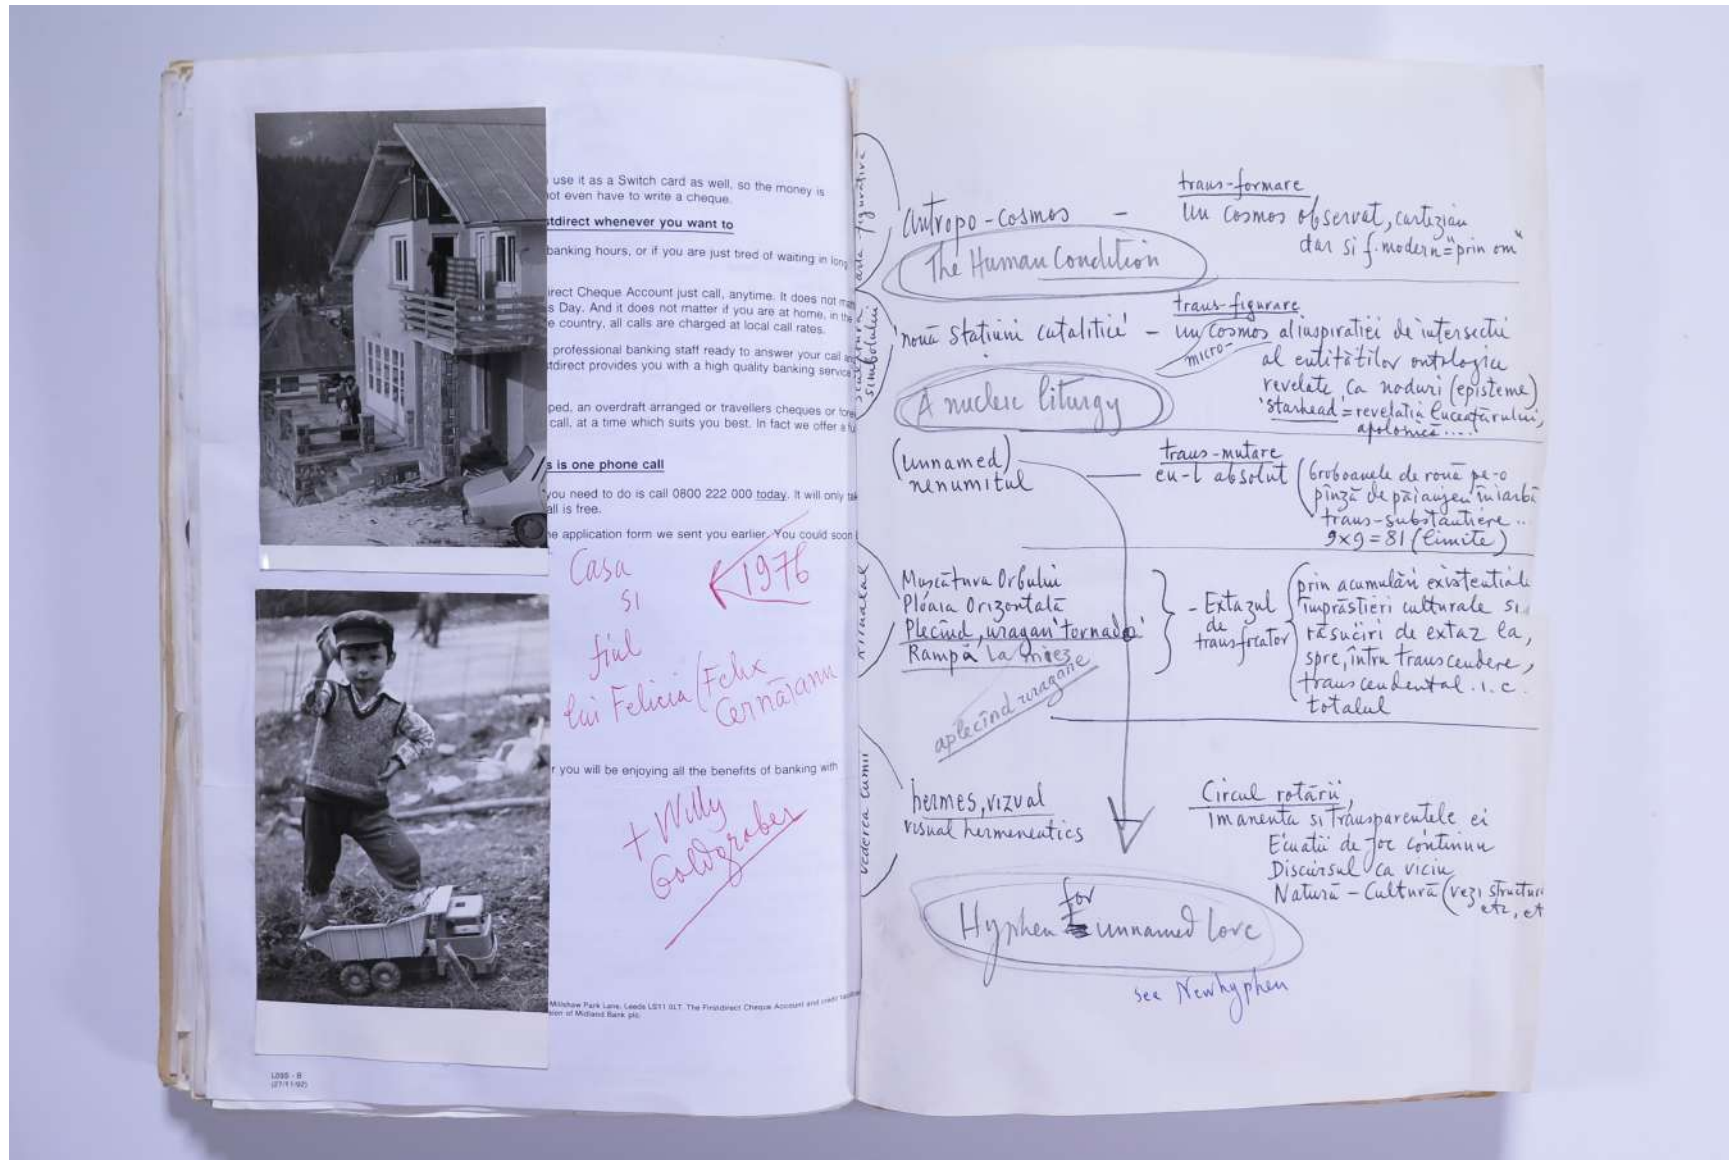 use it as a Switch card as well, so the money is
not even have to write a cheque.
stdirect whenever you want to
banking hours, or if you are just tired of waiting in long
irect Cheque Account just call, anytime. It does not
s Day. And it does not matter if you are at home, in the
e country, all calls are charged at local call rates.
professional banking staff ready to answer your call
stdirect provides you with a high quality banking service
ped, an overdraft arranged or travellers cheques or
call, at a time which suits you best. In fact we offer a
s is one phone call
you need to do is call 0800 222 000 today. It will only
all is free.
he application form we sent you earlier. You could soon
1976
Casa
si
fiul
lui Felicia (Felix
Cernăianu
r you will be enjoying all the benefits of banking with
+ Willy
Goldgraber
Millshaw Park Lane, Leeds LS11 0LT. The Firstdirect Cheque Account and credit
sion of Midland Bank plc.
L095 - B
(27/11/92)
arta figurativă
antropo-cosmos -
The Human Condition
trans-formare
un cosmos observat, cartezian
dar si f. modern="prin om"
simbolului
'nouă statiuni catalitice' -
A nucleic liturgy
trans-figurare
un cosmos al inspiratiei de intersectii
micro-
al entităților ontologice
revelate ca noduri (episteme)
'starhead'=revelatia luceafărului,
apolonică.....
(unnamed)
nenumitul
trans-mutare
eu-l absolut
(broboanele de rouă pe-o
pînză de păianjen în iarbă
trans-substantiere..
9x9=81 (limite)
Mușcătura Orbului
Ploaia Orizontală
Plecînd, uragan 'tornado'
Rampă la mieze
aplecînd uragane
- Extazul
de
transfocator
prin acumulări existentiale
împrăstieri culturale si
răsuciri de extaz la,
spre, întru transcendere,
transcendental .i.c.
totalul
vederea lumii
hermes, vizual
visual hermeneutics
Circul rotării,
Imanenta si Transparentele ei
Ecuatii de joc continuu
Discursul ca viciu
Natură - Cultură (vezi structur
etc, et
for
Hyphen unnamed love
see Newhyphen